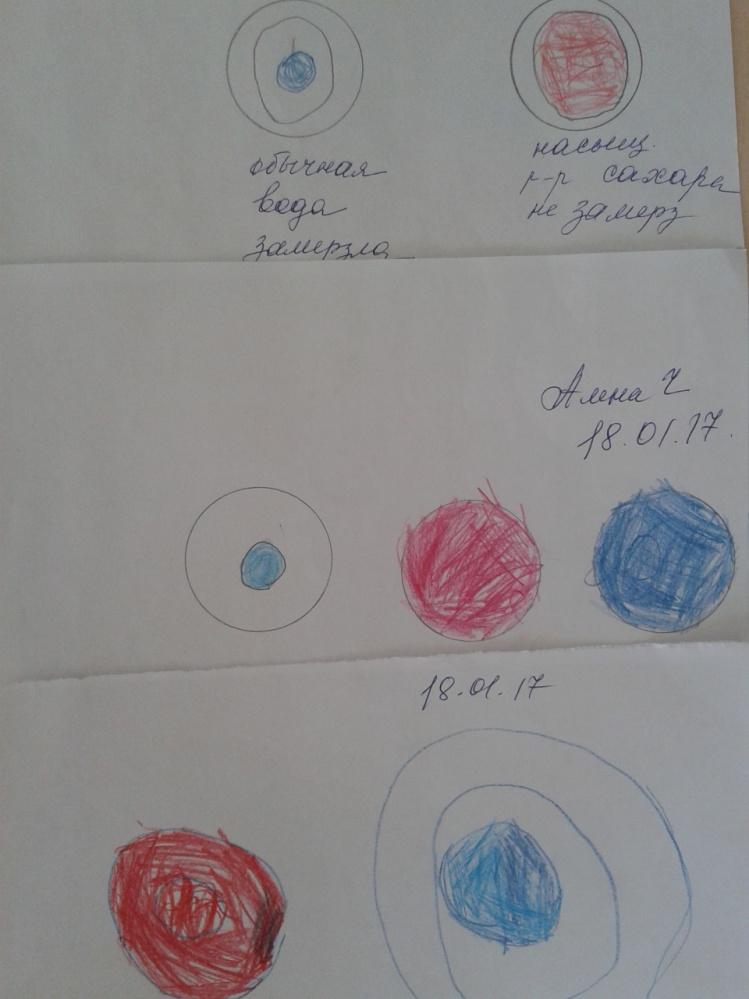 обычная
вода
замерзла
насыщ.
р-р сахара
не замерз
Алина Ч
18.01.17.
18.01.17